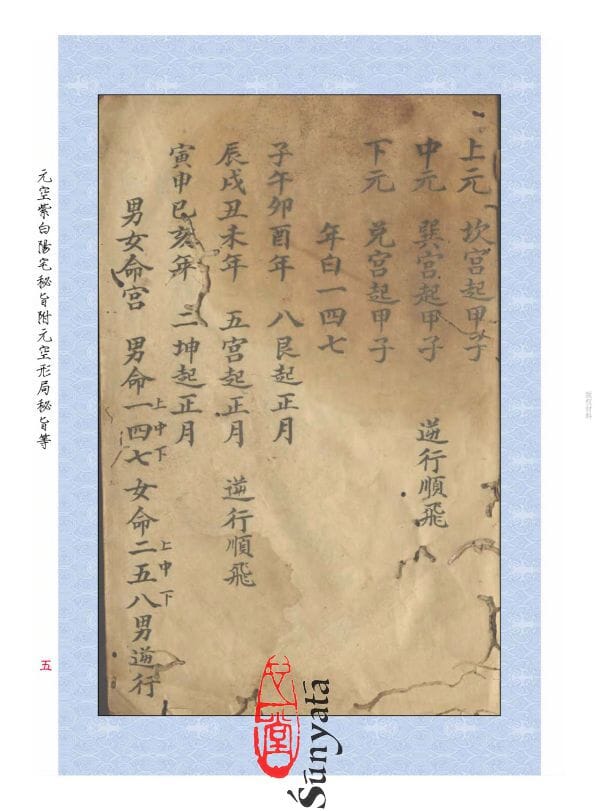 上元　坎宮起甲子
中元　巽宮起甲子　逆行順飛
下元　兌宮起甲子
年白一四七
子午卯酉年　八艮起正月
辰戌丑未年　五宮起正月　逆行順飛
寅申巳亥年　二坤起正月
男女命宮　男命一四七上中下　女命二五八上中下男逆行
元空紫白陽宅秘旨附元空形局秘旨等
五
心一堂
Śūnyatā
版权材料